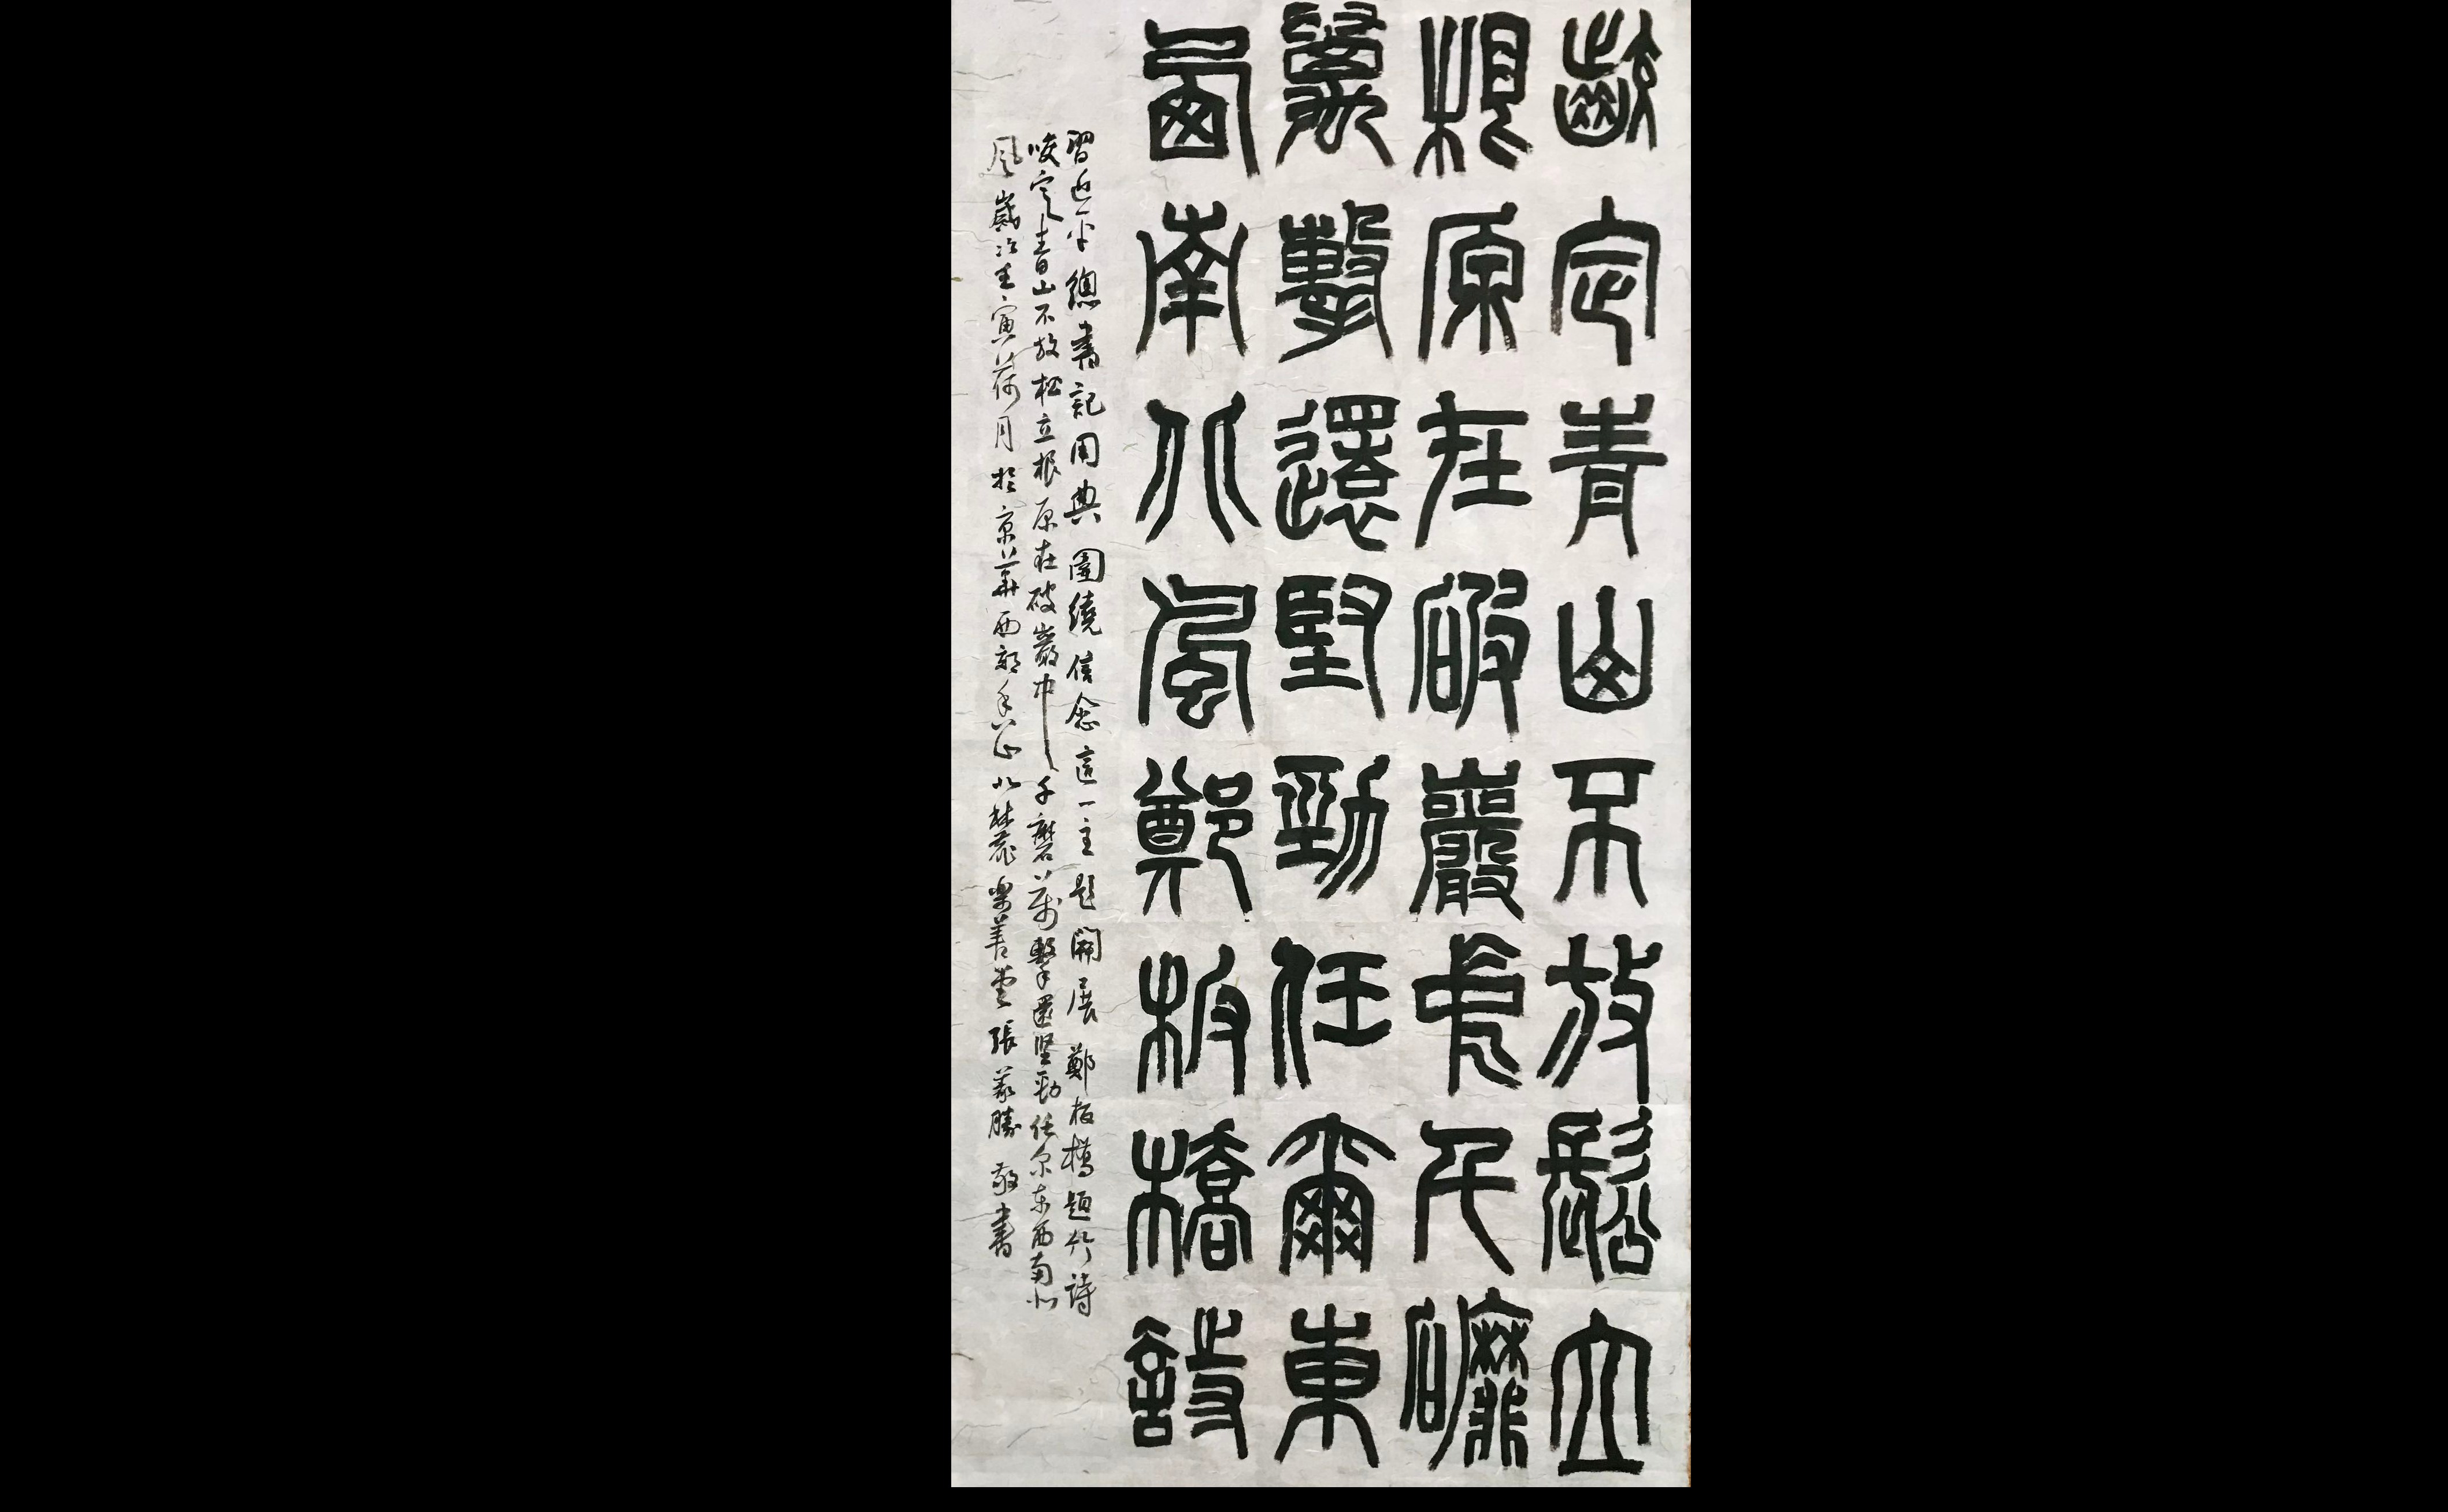 齩定青山不放鬆立
根原在破巖中千磨
萬擊還堅勁任爾東
西南北風鄭板橋詩
習近平總書記用典圍繞信念這一主題開展鄭板橋題竹詩
咬定青山不放松立根原在破巖中千磨萬擊還坚勁任尔东西南北
风歲次壬寅荷月於京華西郊北樂善堂張義勝敬書